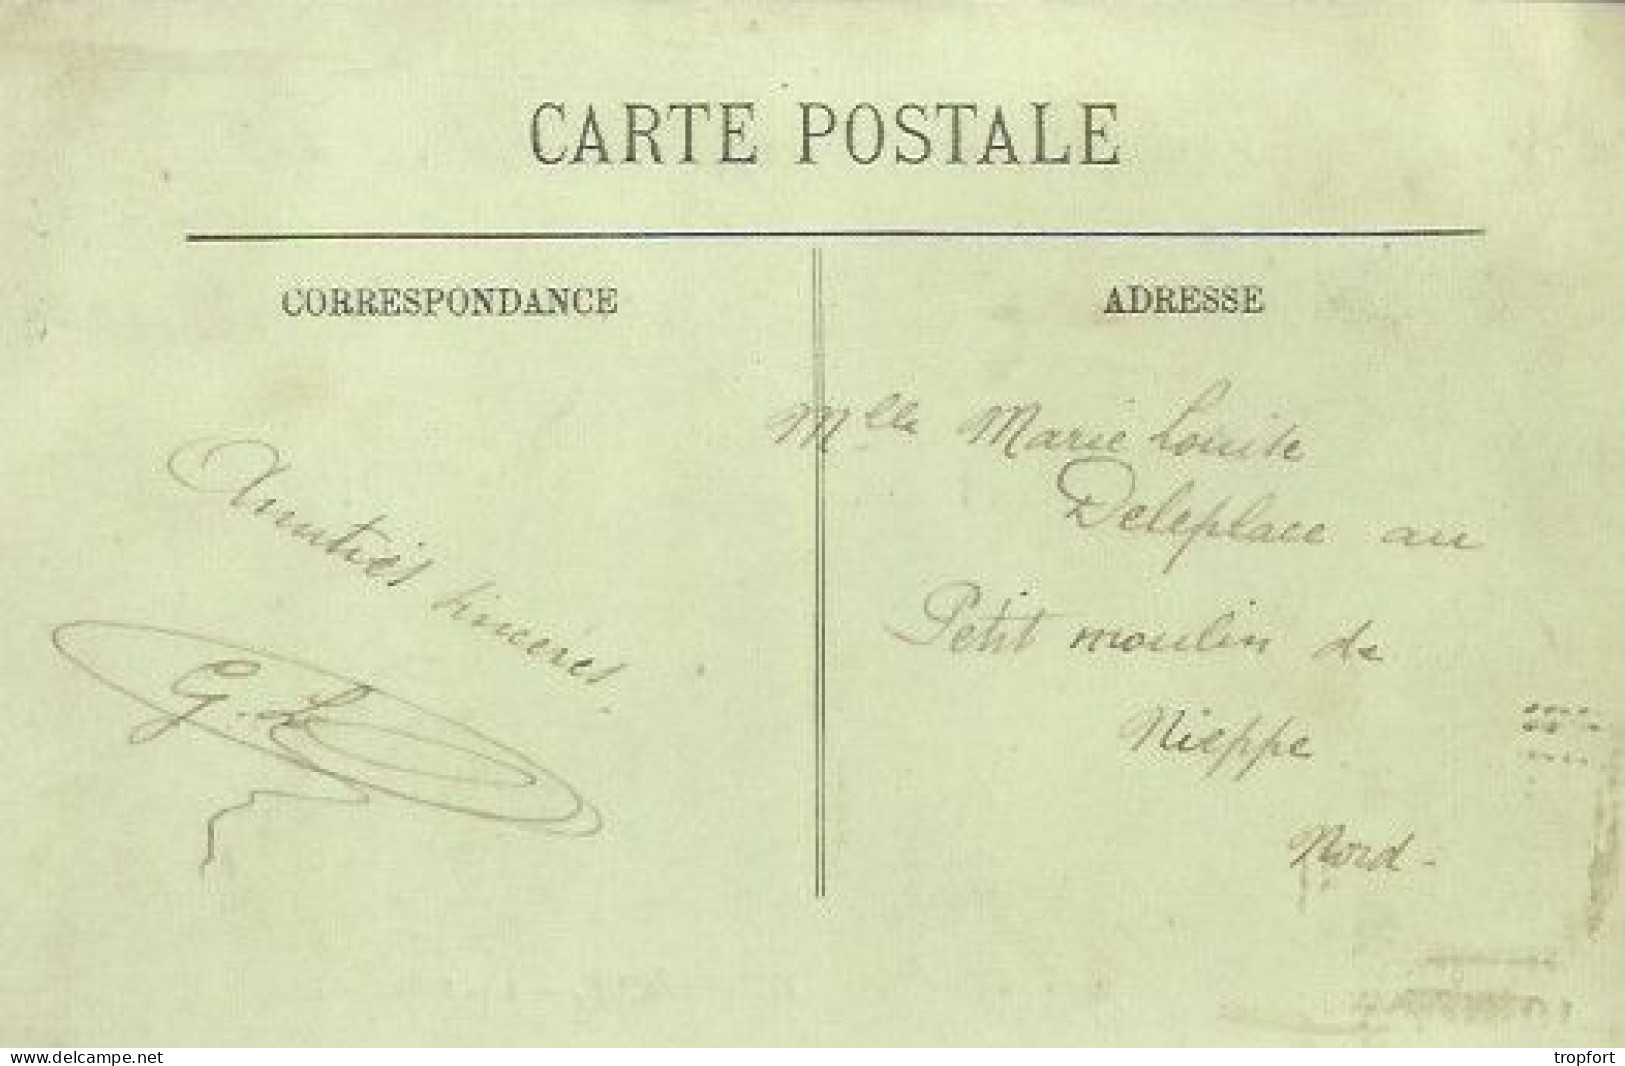 CARTE POSTALE
CORRESPONDANCE
Amitiés sincères.
G. L
ADRESSE
Mlle Marie Louise
Deleplace au
Petit moulin de
Nieppe
Nord -
www.delcampe.net
tropfort